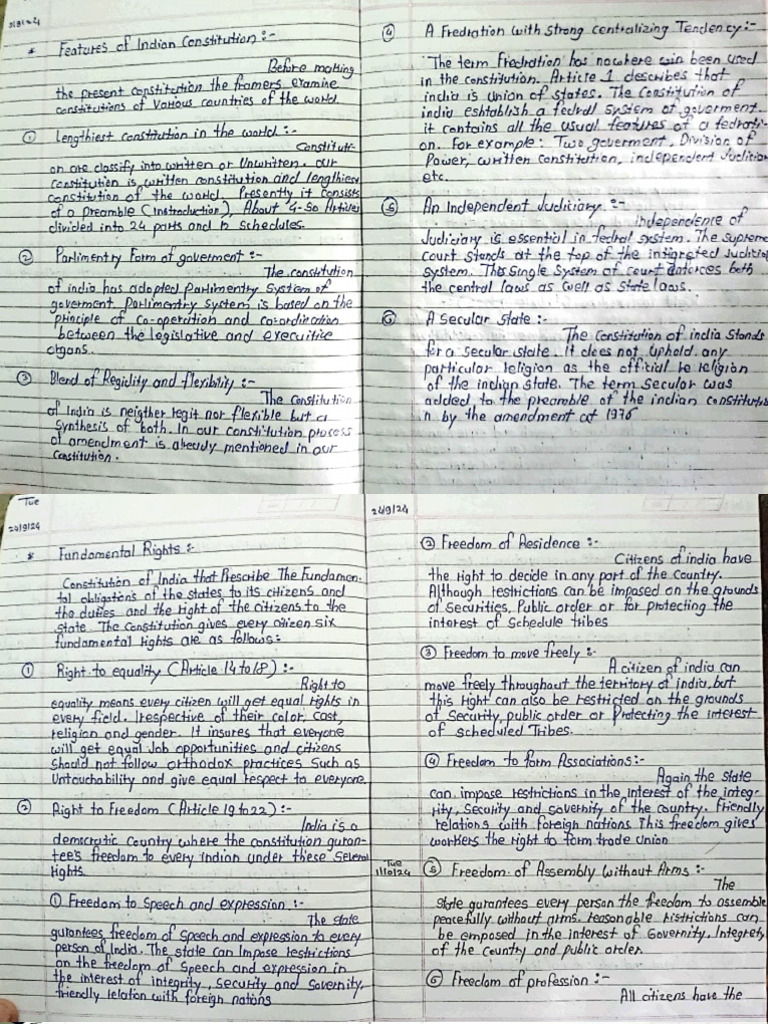 * Features of Indian Constitution :-
Before making
the present constitution the framers examine
constitutions of various countries of the world.
① Lengthiest constitution in the world :-
Constituti-
on are classify into written or Unwritten. our
constitution is written constitution and lengthiest
constitution of the world. Presently it consists
of a Preamble (Instroduction), About 4-50 Articles
divided into 24 parts and 12 schedules.
② Parlimentry Form of goverment :-
The constitution
of india has adopted parlimentry system of
goverment. parlimentry system is based on the
principle of co-operation and co-ordination
between the legislative and executive
organs.
③ Blend of Regidity and flexibility :-
The constitution
of India is neigther regit nor flexible but a
synthesis of both. In our constitution process
of amendment is already mentioned in our
constitution.
④ A Fredration with strong centralizing Tendency :-
The term Fredration has nowhere been used
in the constitution. Article 1 describes that
india is union of states. The Constitution of
india eshtablish a fedral system of goverment.
it contains all the usual features of a fedrati-
on. For example : Two goverment, Division of
Power, written constitution, independent Judiciary
etc.
⑤ An Independent Judiciary :-
independence of
Judiciary is essential in fedral system. The supreme
court stands at the top of the intigreted Juditial
system. This single system of court enforces both
the central laws as well as state laws.
⑥ A Secular State :-
The Constitution of india stands
for a secular state. it does not uphold any
particular religion as the official religion
of the indian state. The term secular was
added to the preamble of the indian constitutio
n by the amendment of 1976
Tue
24/9/24
* Fundamental Rights :-
Constitution of India that Prescribe The Fundamen-
tal obligations of the states to its citizens and
the duties and the right of the citizens to the
state. The constitution gives every citizen six
fundamental rights are as follows :
① Right to equality (Article 14 to 18) :-
Right to
equality means every citizen will get equal rights in
every field. Irespective of their color, cast,
religion and gender. It insures that everyone
will get equal Job opportunities and citizens
should not follow orthodox practices such as
Untouchability and give equal respect to everyone.
② Right to Freedom (Article 19 to 22) :-
India is a
democratic country where the constitution guran-
tee's freedom to every indian under these several
rights.
① Freedom to speech and expression :-
The state
gurantees freedom of speech and expression to every
person of India. The state can impose restrictions
on the freedom of speech and expression in
the interest of integrity, security and sovernity,
friendly relation with foreign nations
24/9/24
② Freedom of Residence :-
Citizens of india have
the right to decide in any part of the country.
Although restrictions can be imposed on the grounds
of Securities, Public order or for protecting the
interest of Schedule tribes
③ Freedom to move freely :-
A citizen of india can
move freely throughout the territory of india, but
this right can also be restricted on the grounds
of security, public order or protecting the interest
of scheduled Tribes.
④ Freedom to form Associations :-
Again the state
can impose restrictions in the interest of the integ-
rity, security and soverity of the country. Friendly
relations with foreign nations This freedom gives
workers the right to form trade Union
Tue
1/10/24
⑤ Freedom of Assembly Without Arms :-
The
state gurantees every person the freedom to assemble
peacefully without arms. reasonable ristrictions can
be emposed in the interest of Governity. Integrety
of the country and public order.
⑥ Freedom of profession :-
All citizens have the